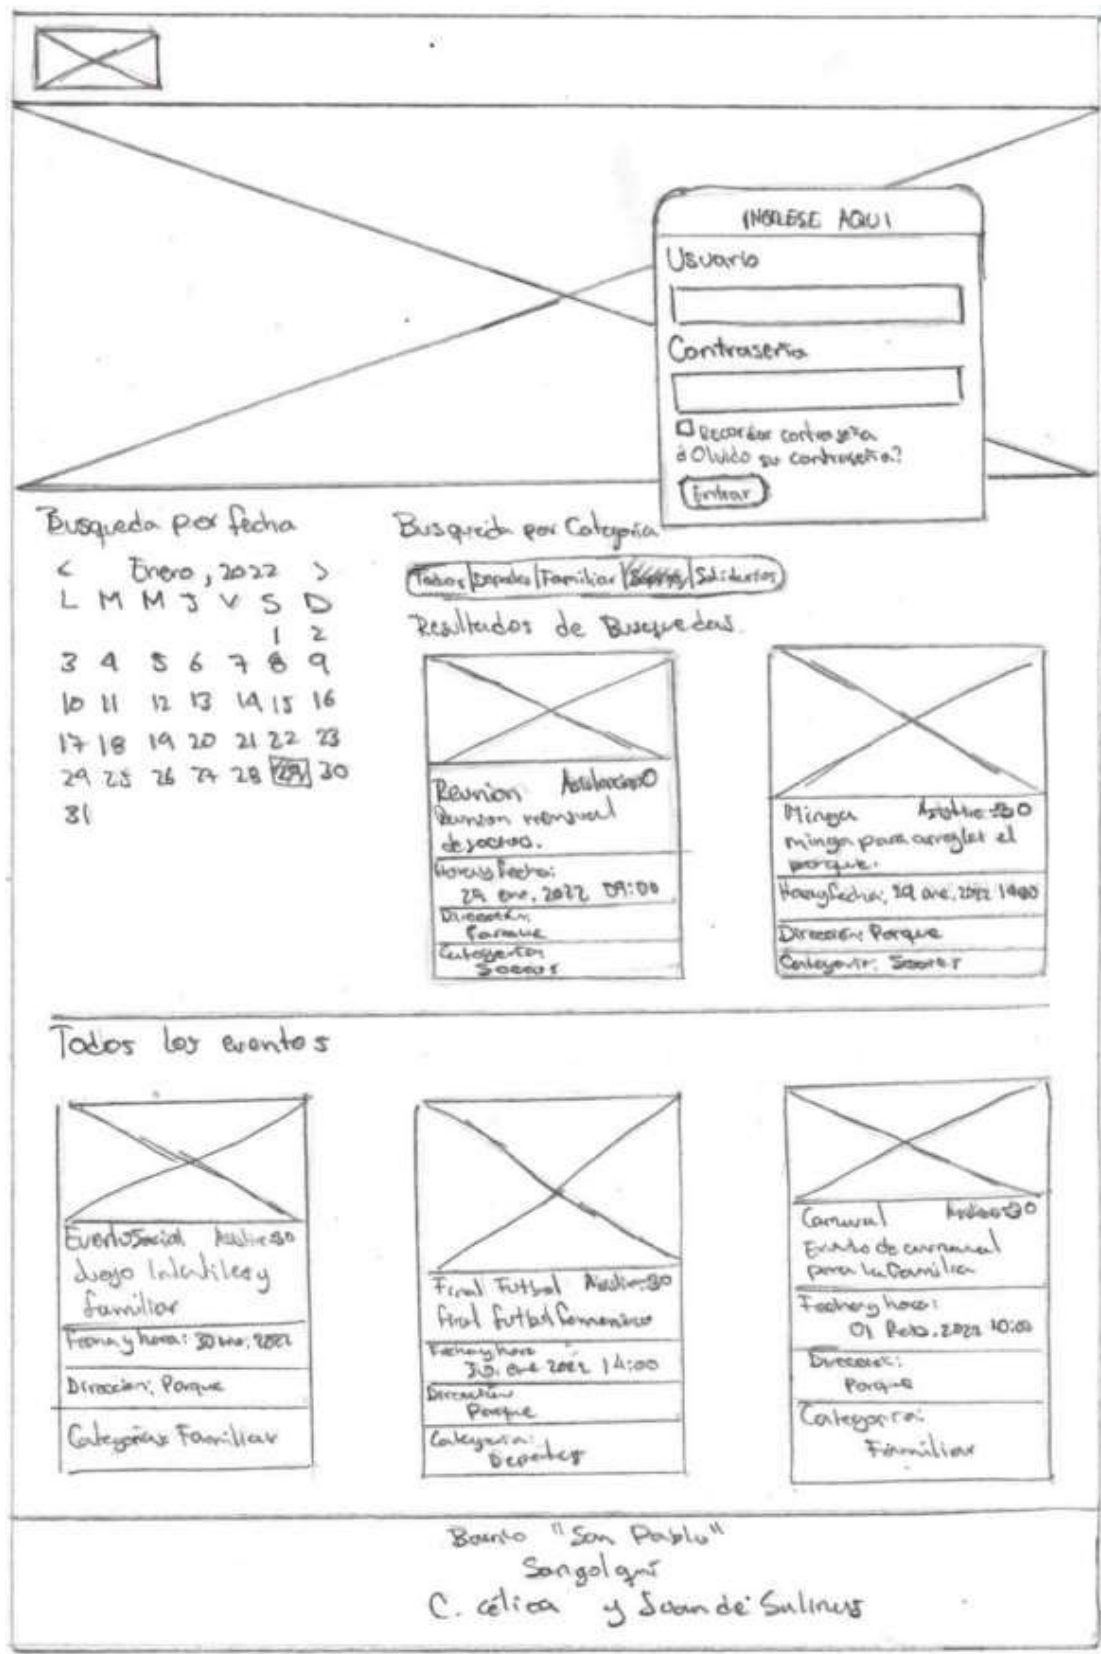 INGRESE AQUI
Usuario
Contraseña
Recordar contraseña
¿Olvido su contraseña?
Entrar
Busqueda por fecha
< Enero, 2022 >
L M M J V S D
1 2
3 4 5 6 7 8 9
10 11 12 13 14 15 16
17 18 19 20 21 22 23
24 25 26 27 28 29 30
31
Busqueda por Categoria
Todos Deportes Familiar Socios Solidarios
Resultados de Busquedas.
Reunion
Reunion mensual
de socios.
Hora y fecha:
29 ene. 2022 09:00
Dirección:
Parque
Categoria:
Socios
Minga
minga para arreglar el
parque.
Hora y fecha: 29 ene. 2022 14:00
Dirección: Parque
Categoria: Socios
Todos los eventos
Evento Social
Juego Infantiles y
familiar
Fecha y hora: 30 ene. 2022
Direccion: Parque
Categoria: Familiar
Final Futbol
final futbol femenino
Fecha y hora
30 ene 2022 14:00
Dirección
Parque
Categoria:
Deportes
Carnaval
Evento de carnaval
para la familia
Fecha y hora:
01 Feb. 2022 10:00
Parque
Categoria:
Familiar
Barrio "San Pablo"
Sangolquí
C. célica y Juan de Salinas